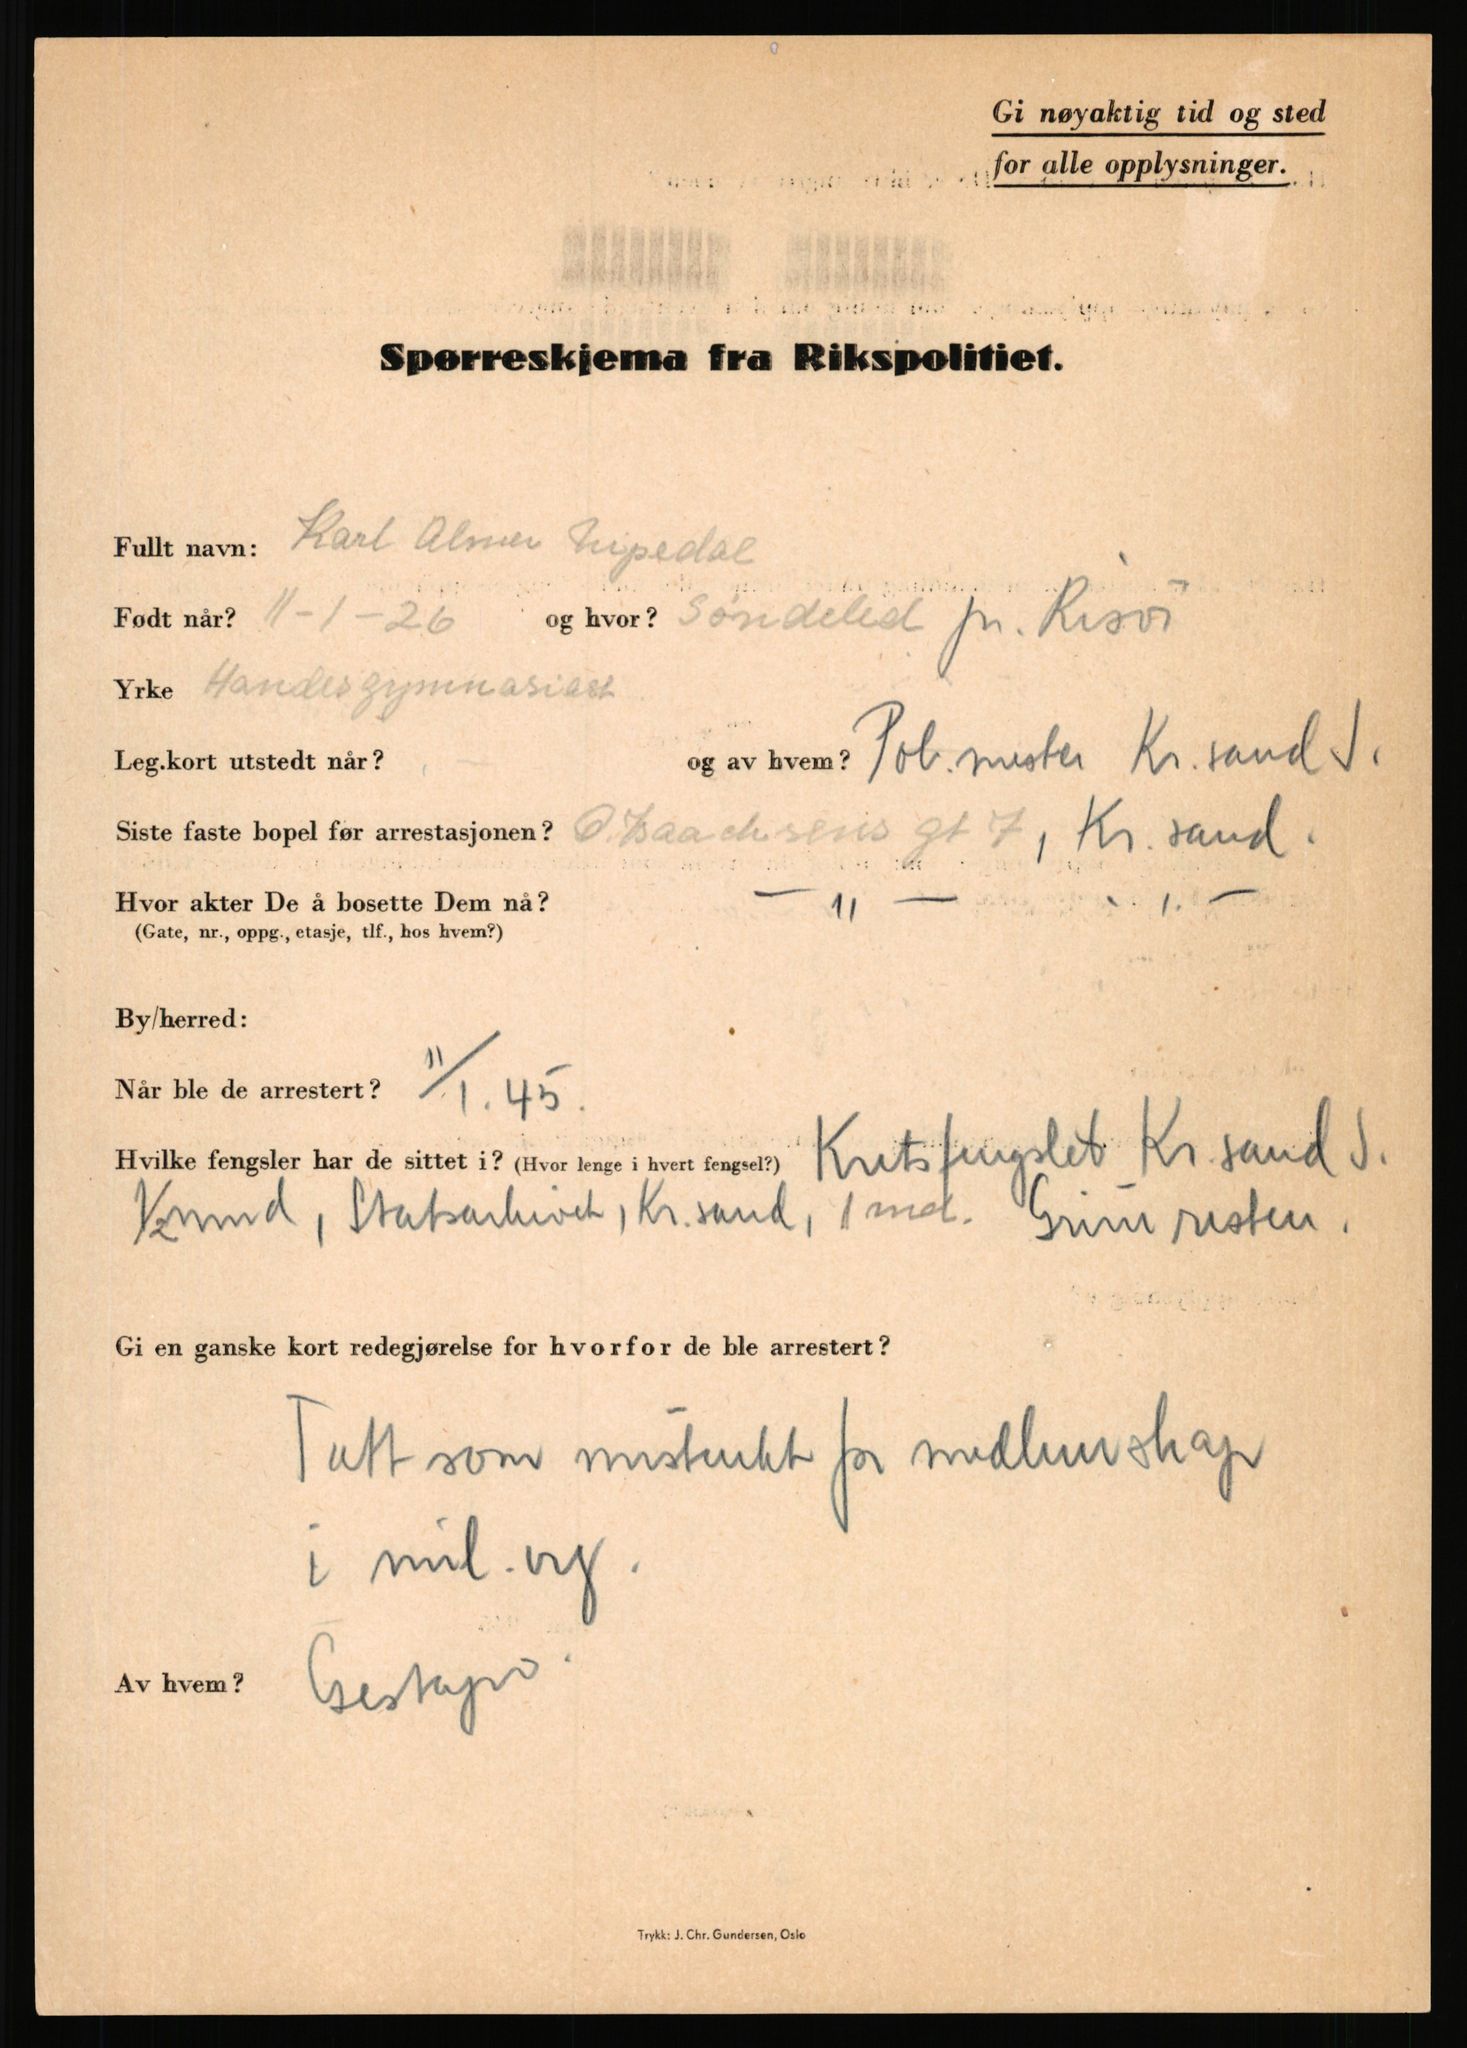 Gi nøyaktig tid og sted
for alle opplysninger.
Spørreskjema fra Rikspolitiet.
Fullt navn: Karl Almer
Født når? 11-1-26 og hvor? Søndeled pr. Risör
Yrke Handesgymnasiast
Leg.kort utstedt når? og av hvem? Pol.mester Kr.sand S.
Siste faste bopel før arrestasjonen? O. Isaachsens gt 7, Kr. sand.
Hvor akter De å bosette Dem nå? — 11 — — 11 —
(Gate, nr., oppg., etasje, tlf., hos hvem?)
By/herred:
Når ble de arrestert? 11/1.45.
Hvilke fengsler har de sittet i? (Hvor lenge i hvert fengsel?) Kretsfengslet Kr.sand S.
1/2 mnd, Statsarkivet, Kr.sand, 1 md. Grini resten.
Gi en ganske kort redegjørelse for hvorfor de ble arrestert?
Tatt som mistenkt for medlemskap
i mil. org.
Av hvem? Gestapo.
Trykk: J. Chr. Gundersen, Oslo